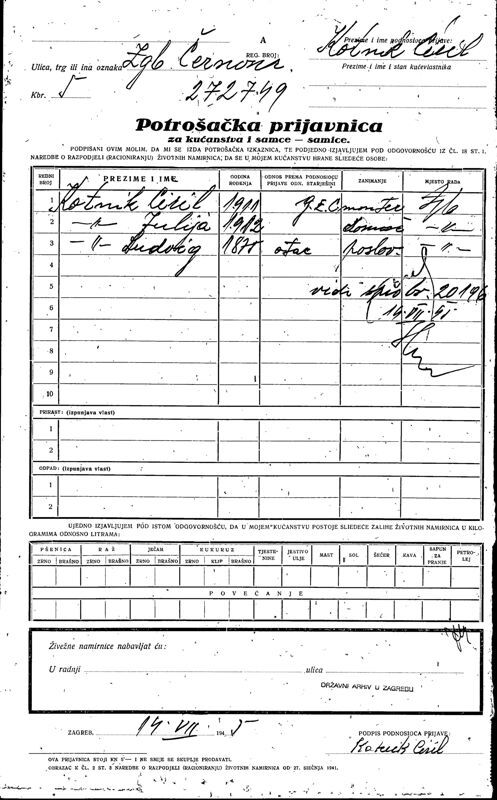 A
REG. BROJ:
Prezime i ime podnosioca prijave:
Kotnik Ciril
Ulica, trg ili ina oznaka Zgb
Prezime i ime i stan kućevlastnika
Kbr. 5
272749
Potrošačka prijavnica
za kućanstva i samce — samice.
PODPISANI OVIM MOLIM, DA MI SE IZDA POTROŠAČKA IZKAZNICA, TE PODJEDNO IZJAVLJUJEM POD ODGOVORNOŠĆU IZ ČL. 18 ST. 1.
NAREDBE O RAZPODJELI (RACIONIRANJU) ŽIVOTNIH NAMIRNICA, DA SE U MOJEM KUĆANSTVU HRANE SLIEDEĆE OSOBE:
REDNI BROJ PREZIME I IME GODINA RODJENJA ODNOS PREMA PODNOSIOCU PRIJAVE ODN. STARJEŠINI ZANIMANJE MJESTO RADA
1 Kotnik Ciril 1911 monter Zgb
2 —"— Julija 1912 domać. —"—
3 —"— Ludvig otac poslov. —"—
4
5 vidi spis br. 20196
6 14. VII. 45.
7
8
9
10
PRIRAST: (izpunjava vlast)
1
2
ODPAD: (izpunjava vlast)
1
2
UJEDNO IZJAVLJUJEM POD ISTOM ODGOVORNOŠĆU, DA U MOJEM KUĆANSTVU POSTOJE SLIEDEĆE ZALIHE ŽIVOTNIH NAMIRNICA U KILO-
GRAMIMA ODNOSNO LITRAMA:
PŠENICA RAŽ JEČAM KUKURUZ TJESTE-NINE JESTIVO ULJE MAST SOL ŠEĆER KAVA SAPUN ZA PRANJE PETRO-LEJ
ZRNO BRAŠNO ZRNO BRAŠNO ZRNO BRAŠNO ZRNO KLIP BRAŠNO
POVEĆANJE
Živežne namirnice nabavljat ću:
U radnji ulica
DRŽAVNI ARHIV U ZAGREBU
ZAGREB, 14. VII 194 5
PODPIS PODNOSIOCA PRIJAVE:
Kotnik Ciril
OVA PRIJAVNICA STOJI KN 5— I NE SMIJE SE SKUPLJE PRODAVATI.
OBRAZAC K ČL. 2 ST. 5 NAREDBE O RAZPODJELI (RACIONIRANJU) ŽIVOTNIH NAMIRNICA OD 27. SIEČNJA 1941.